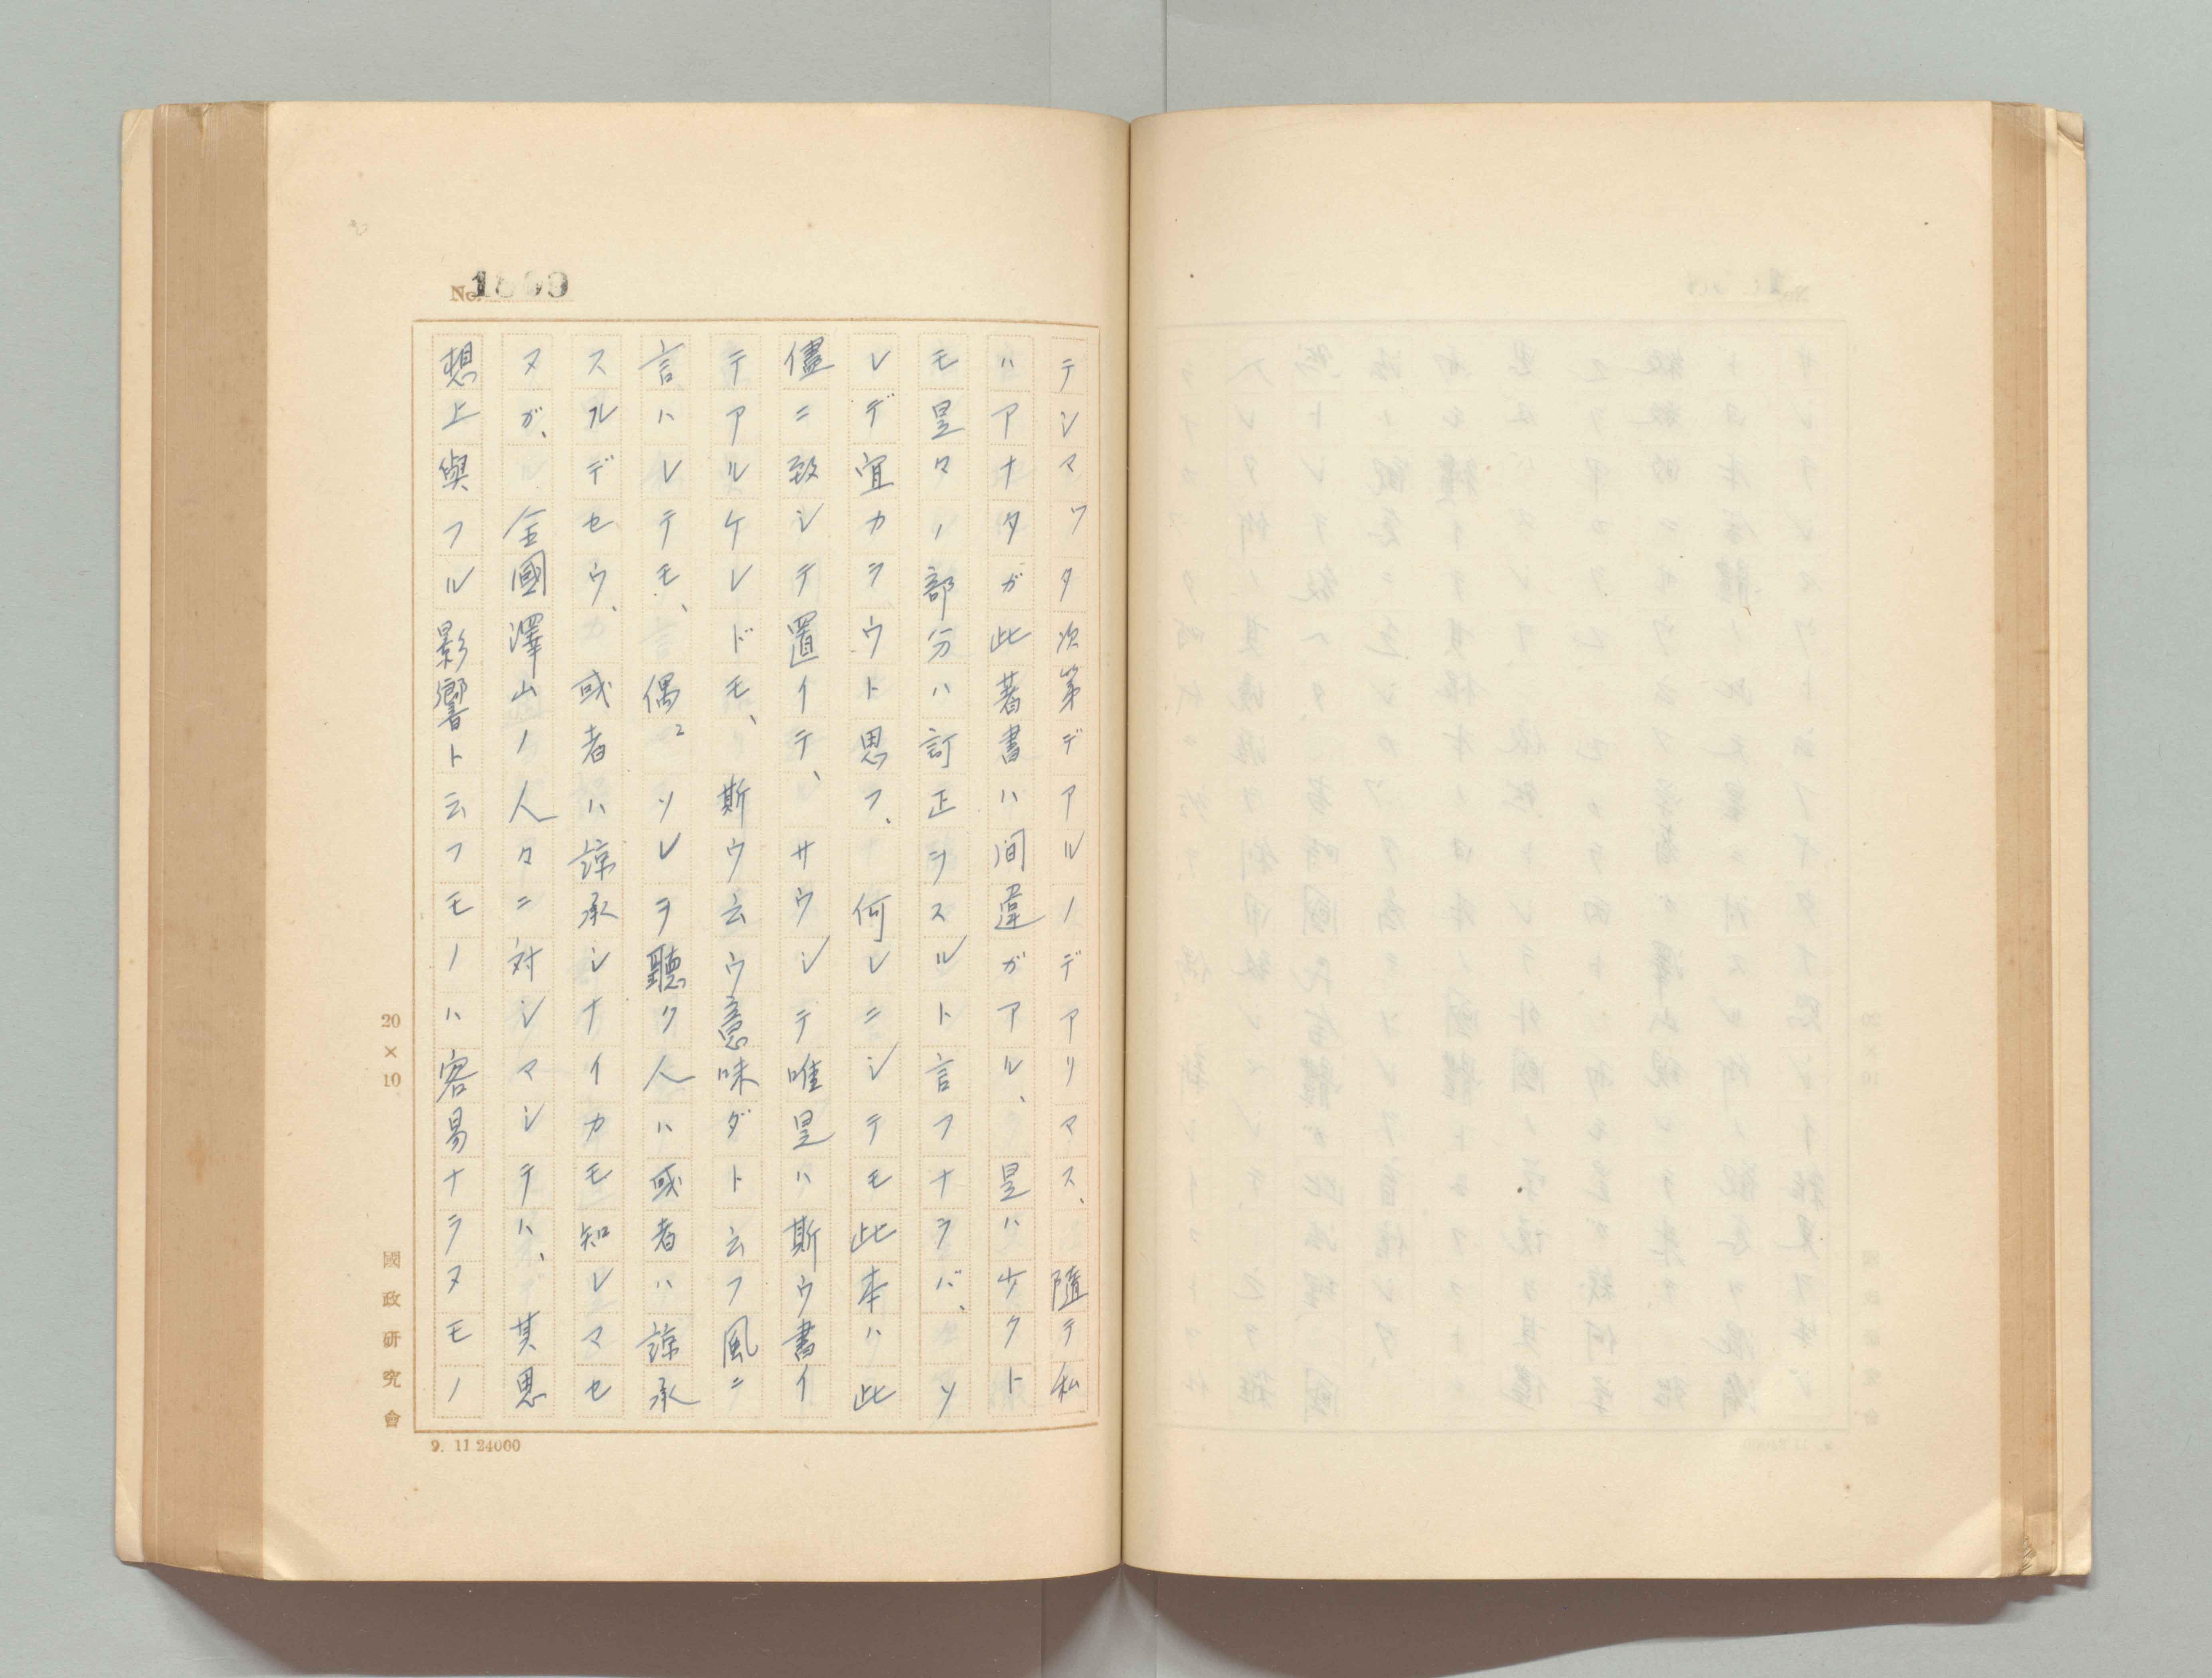 テシマツタ次第デアルノデアリマス、隨テ私
ハアナタガ此著書ハ间違ガアル、是ハ少クト
モ是々ノ部分ハ訂正ヲスルト言フナラバ、ソ
レデ宜カラウト思フ、何レニシテモ此本ハ此
儘ニ致シテ置イテ、サウシテ唯是ハ斯ウ書イ
テアルケレドモ、斯ウ云ウ意味ダト云フ風ニ
言ハレテモ、偶〻ソレヲ聽ク人ハ或者ハ諒承
スルデセウ、或者ハ諒承シナイカモ知レマセ
ヌガ、全國澤山ノ人々ニ対シマシテハ、其思
想上與フル影響ト云フモノハ容易ナラヌモノ
No.
20×10
國政研究會
9. 11 24000